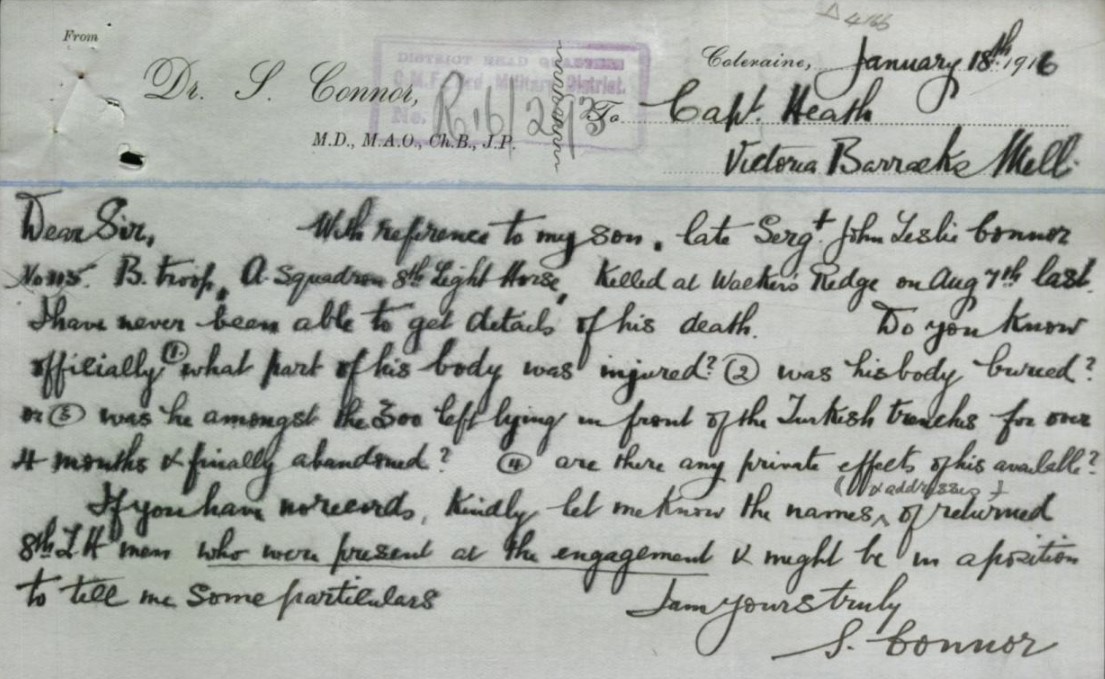 From
Dr. S. Connor,
M.D., M.A.O., Ch.B., J.P.
DISTRICT HEAD QUARTERS
C.M.F. 3rd Military District.
No. R.6/2
4166
Coleraine, January 18th 1916
To Capt. Heath
Victoria Barracks Mell.
Dear Sir, With reference to my son, late Sergt John Leslie Connor
No 115. B. troop, A Squadron 8th Light Horse, Killed at Walker's Ridge on Aug 7th last.
I have never been able to get details of his death. Do you know
officially (1) what part of his body was injured? (2) was his body buried?
or (3) was he amongst the 300 left lying in front of the Turkish trenches for over
4 months & finally abandoned? (4) are there any private effects of his available?
If you have no records, Kindly let me know the names (& addresses) of returned
8th L H men who were present at the engagement & might be in a position
to tell me some particulars I am yours truly
S. Connor